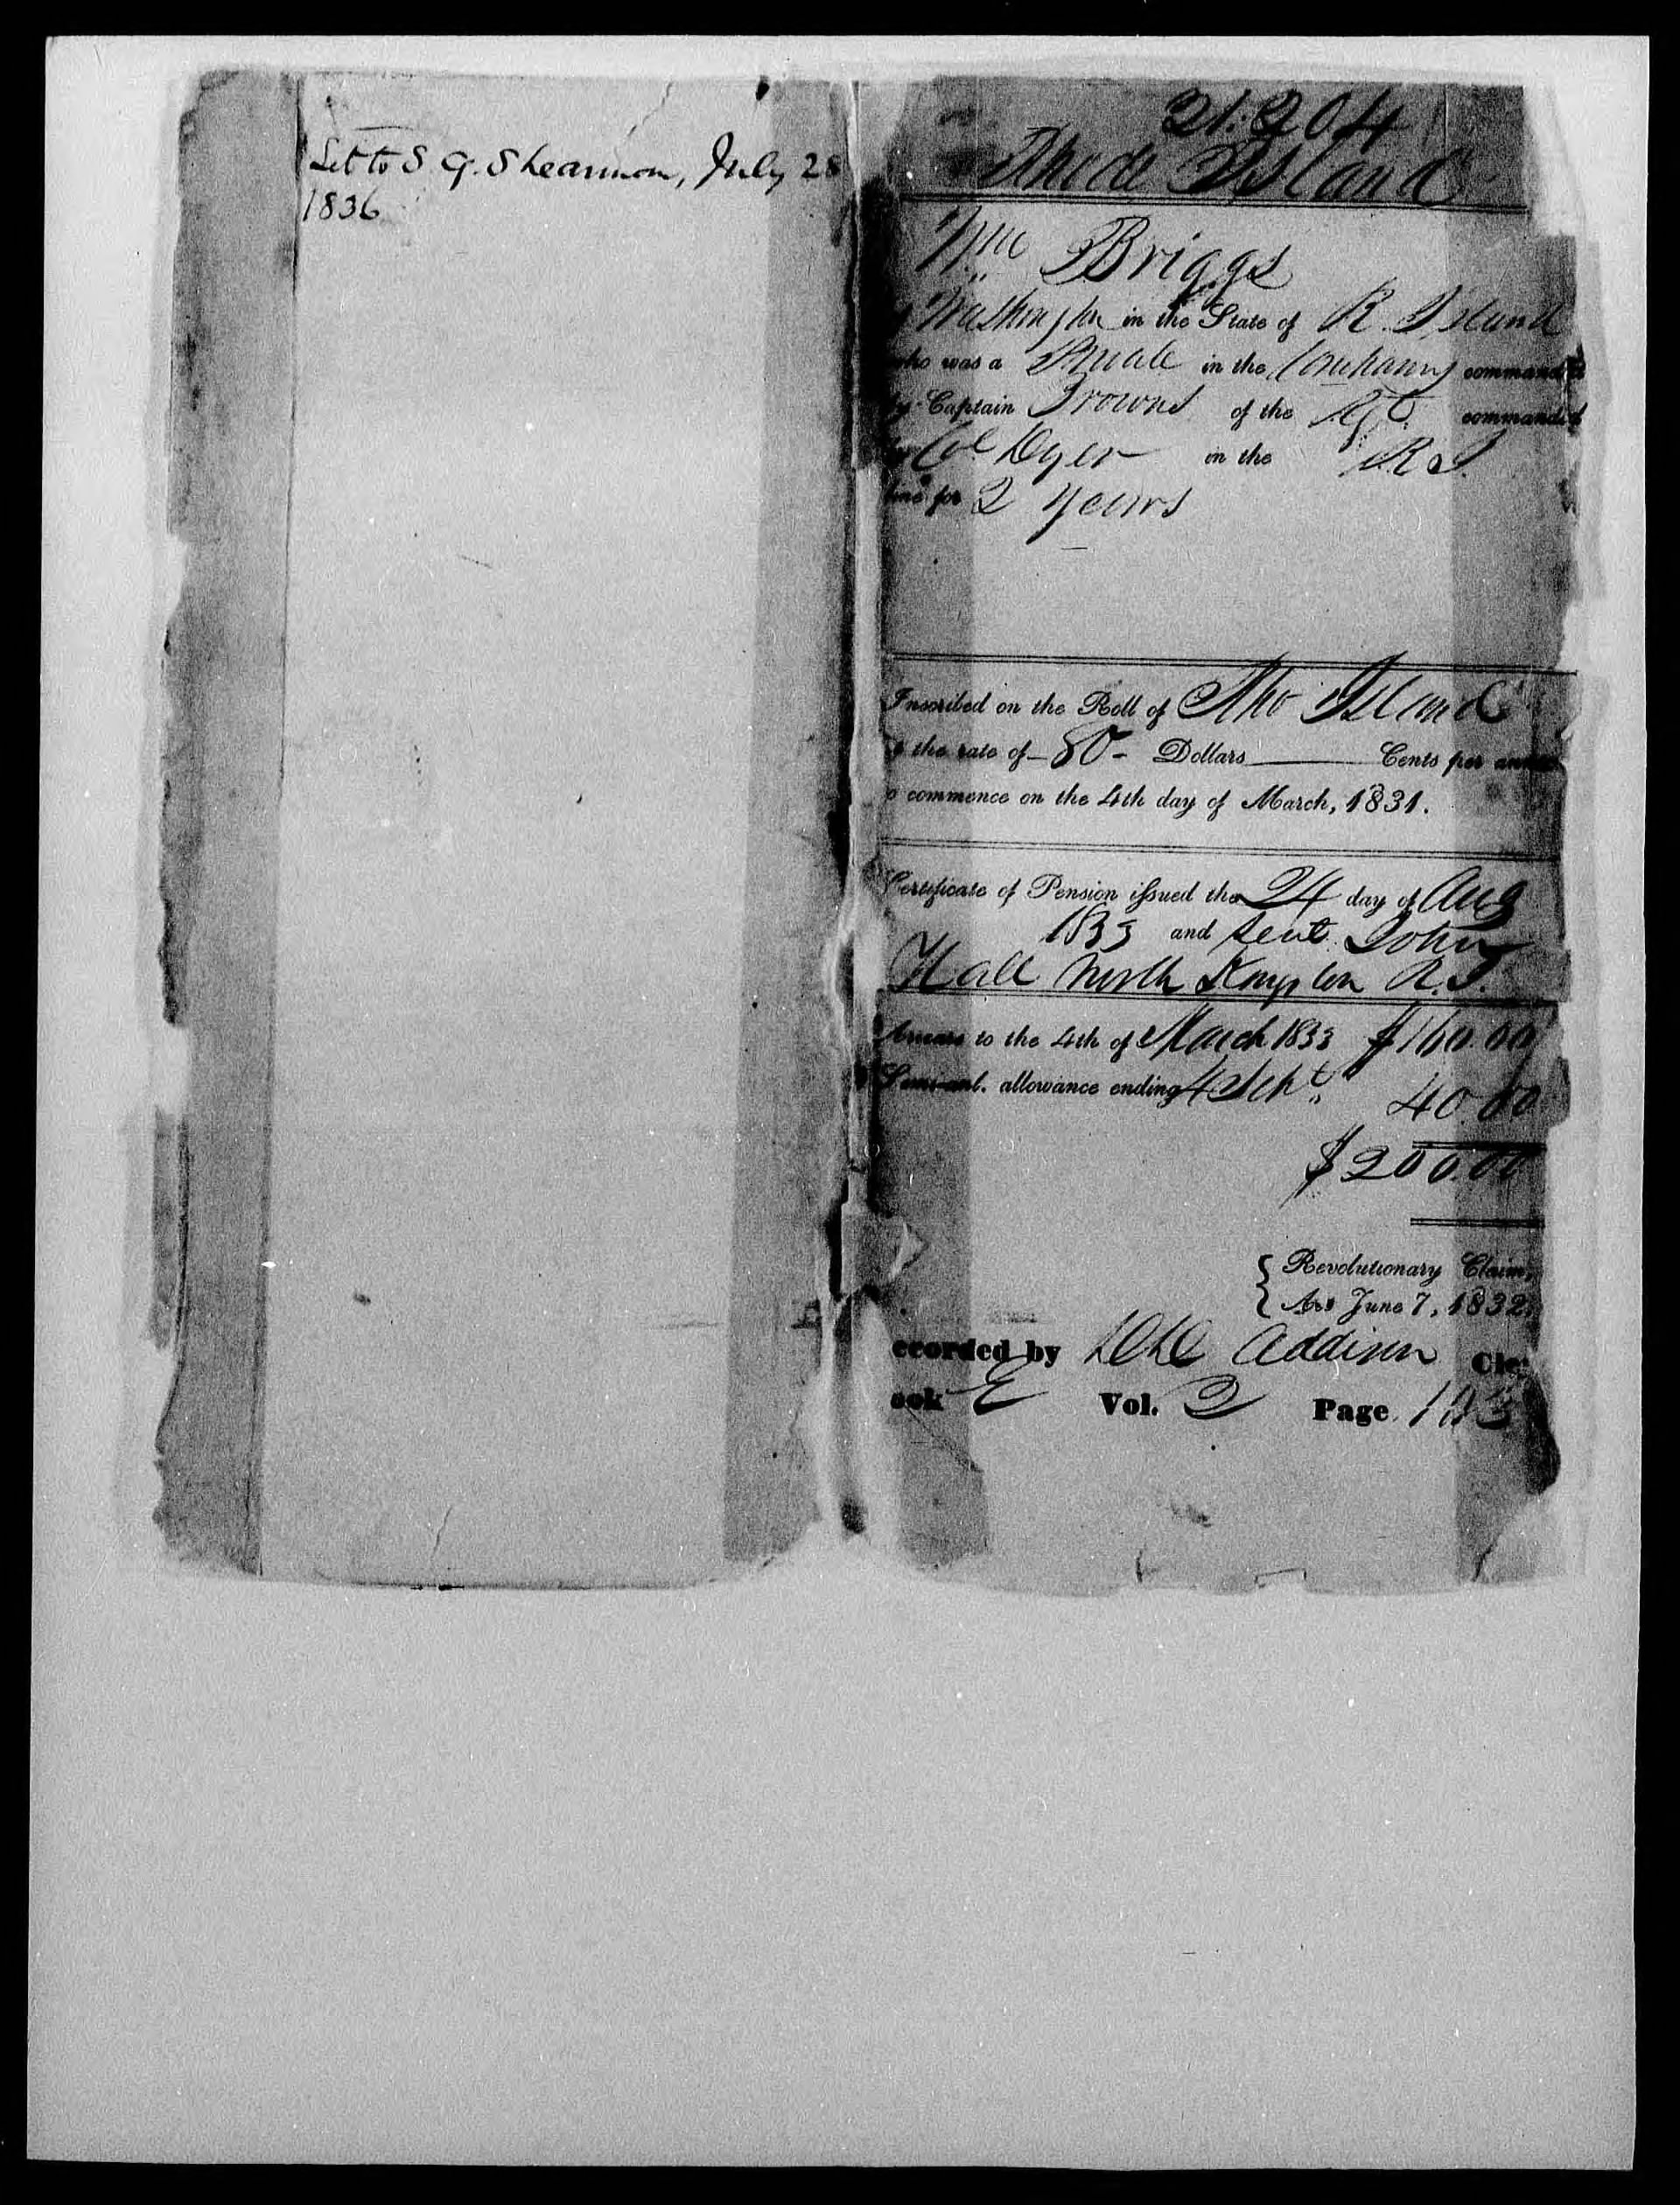 Let to S G. Shearman, July 28
1836
21.204
Rhode Island
Wm Briggs
Washington in the State of R. Island
who was a Private in the Company commanded
by Captain Browns of the Regt commanded
by Col Dyer in the R I.
line for 2 years
Inscribed on the Roll of Rho Island
the rate of 80 - Dollars Cents per annum
o commence on the 4th day of March, 1831.
Certificate of Pension issued the 24 day of Aug
1833 and sent John
Hall North Kingston R.I.
Arrears to the 4th of March 1833 $160.00
Semi-anl. allowance ending 4 Sept 40.00
$200.00
{ Revolutionary Claim,
{ Act June 7, 1832.
ecorded by Addison Cle
ook E Vol. 2 Page